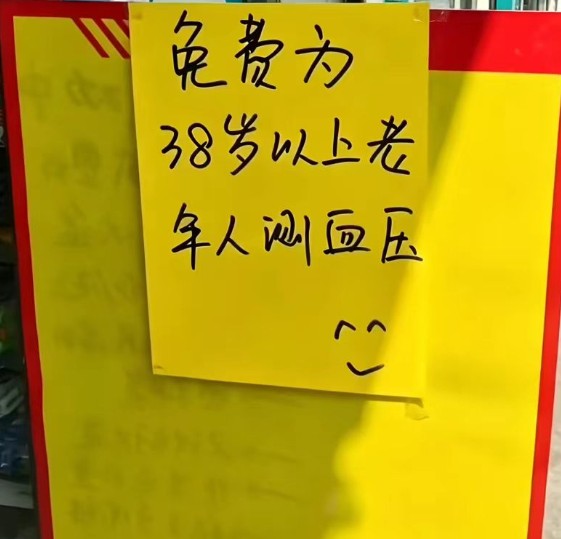 免费为
38岁以上老
年人测血压